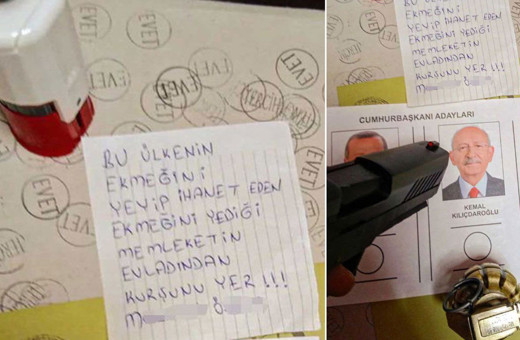 EVET
EVET
EVET
EVET
EVET
TERCİH
BU ÜLKENİN
EKMEĞİNİ
YEYİP İHANET EDEN
EKMEĞİNİ YEDİĞİ
MEMLEKETİN
EVLADINDAN
KURŞUNU YER !!!
M
Ö
EKMEĞİNİ
YEYİP İHANET EDEN
EKMEĞİNİ YEDİĞİ
MEMLEKETİN
EVLADINDAN
KURŞUNU YER !!!
M
CUMHURBAŞKANI ADAYLARI
KEMAL
KILIÇDAROĞLU